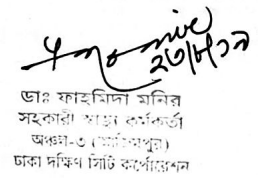 ২৩/৮/১৯
ডাঃ ফাহমিদা মনির
সহকারী স্বাস্থ্য কর্মকর্তা
অঞ্চল-৩ (আজিমপুর)
ঢাকা দক্ষিণ সিটি কর্পোরেশন